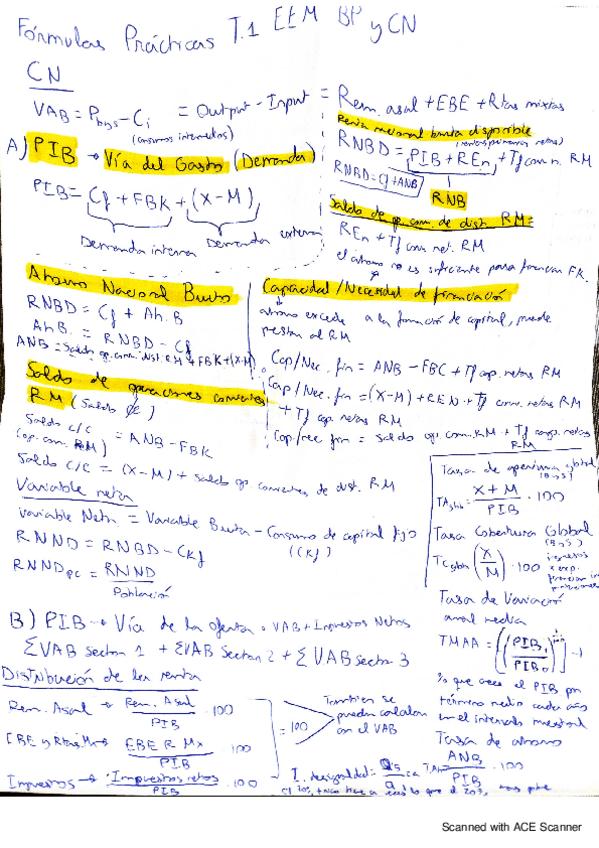 Fórmulas Prácticas T.1 EEM BP y CN
CN
VAB = Pbrys - Ci = Output - Input = Rem. asal + EBE + Rtas mixtas
(consumos intermedios)
Renta nacional bruta disponible
A) PIB → Vía del Gasto (Demanda)
RNBD = PIB + REn + Tf corr n. RM
RNBD = Cf + ANB
RNB
PIB = Cf + FBK + (X - M)
Demanda interna
Demanda externa
Saldo de op. corr. de dist. RM =
REn + Tf corr net. RM
el ahorro no es suficiente para financiar FK.
Ahorro Nacional Bruto
RNBD = Cf + Ah. B
AhB. = RNBD - Cf
ANB = Saldo op. corr. dist. RM + FBK + (X-M)
Capacidad / Necesidad de financiación
ahorro excede a la formación de capital, puede
prestar al RM
Cap/Nec. fin = ANB - FBC + Tf cap. netas RM
Cap/Nec. fin = (X-M) + REN + Tf corr. netas RM
+ Tf cap. netas RM
Cap/nec fin = saldo op. corr. RM + Tf cap. netas
RM
Saldo de operaciones corrientes
RM (Saldo c/c)
Saldo c/c = ANB - FBK
(op. corr. RM)
Saldo c/c = (X-M) + saldo op corrientes de dist. RM
Variable neta
Variable Neta = Variable Bruta - Consumo de capital fijo
(CKf)
RNND = RNBD - CKf
RNNDpc = RNND
Población
Tasa de apertura global
(B y S)
TAglob = X + M / PIB · 100
Tasa Cobertura Global
(B y S)
TCglob (X / M) · 100
ingresos
x exp.
financian
Tasa de Variación
anual media
TMAA = [(PIB1 / PIB0)] - 1
% que crece el PIB por
término medio cada año
en el intervalo muestral
Tasa de ahorro
TAh = ANB / PIB · 100
B) PIB → Vía de la oferta · VAB + Impuestos Netos
ΣVAB sector 1 + ΣVAB Sector 2 + ΣVAB sector 3
Distribución de la renta
Rem. Asal → Rem. Asal / PIB · 100
EBE y Rtas Mx → EBE R Mx / PIB · 100
Impuestos → Impuestos netos / PIB · 100
= 100
También se
pueden calcular
con el VAB
I. desigualdad =
Scanned with ACE Scanner